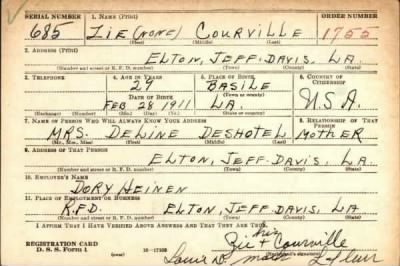 SERIAL NUMBER 1. NAME (Print) ORDER NUMBER
685 ZIE (NONE) COURVILLE 1955
(First) (Middle) (Last)
2. ADDRESS (Print)
ELTON, JEFF. DAVIS, LA.
(Number and street or R. F. D. number) (Town) (County) (State)
3. TELEPHONE 4. AGE IN YEARS 5. PLACE OF BIRTH 6. COUNTRY OF CITIZENSHIP
29 BASILE
DATE OF BIRTH (Town or county)
FEB 28 1911 LA. U.S.A.
(Exchange) (Number) (Mo.) (Day) (Yr.) (State or country)
7. NAME OF PERSON WHO WILL ALWAYS KNOW YOUR ADDRESS 8. RELATIONSHIP OF THAT PERSON
MRS. DELINE DESHOTEL MOTHER
(Mr., Mrs., Miss) (First) (Middle) (Last)
9. ADDRESS OF THAT PERSON
ELTON, JEFF. DAVIS, LA.
(Number and street or R. F. D. number) (Town) (County) (State)
10. EMPLOYER'S NAME
DORY HEINEN
11. PLACE OF EMPLOYMENT OR BUSINESS
R.F.D. ELTON, JEFF. DAVIS, LA.
(Number and street or R. F. D. number) (Town) (County) (State)
I AFFIRM THAT I HAVE VERIFIED ABOVE ANSWERS AND THAT THEY ARE TRUE.
his
REGISTRATION CARD Zie + Courville
D. S. S. Form 1 16-17105 mark
(Registrant's signature)